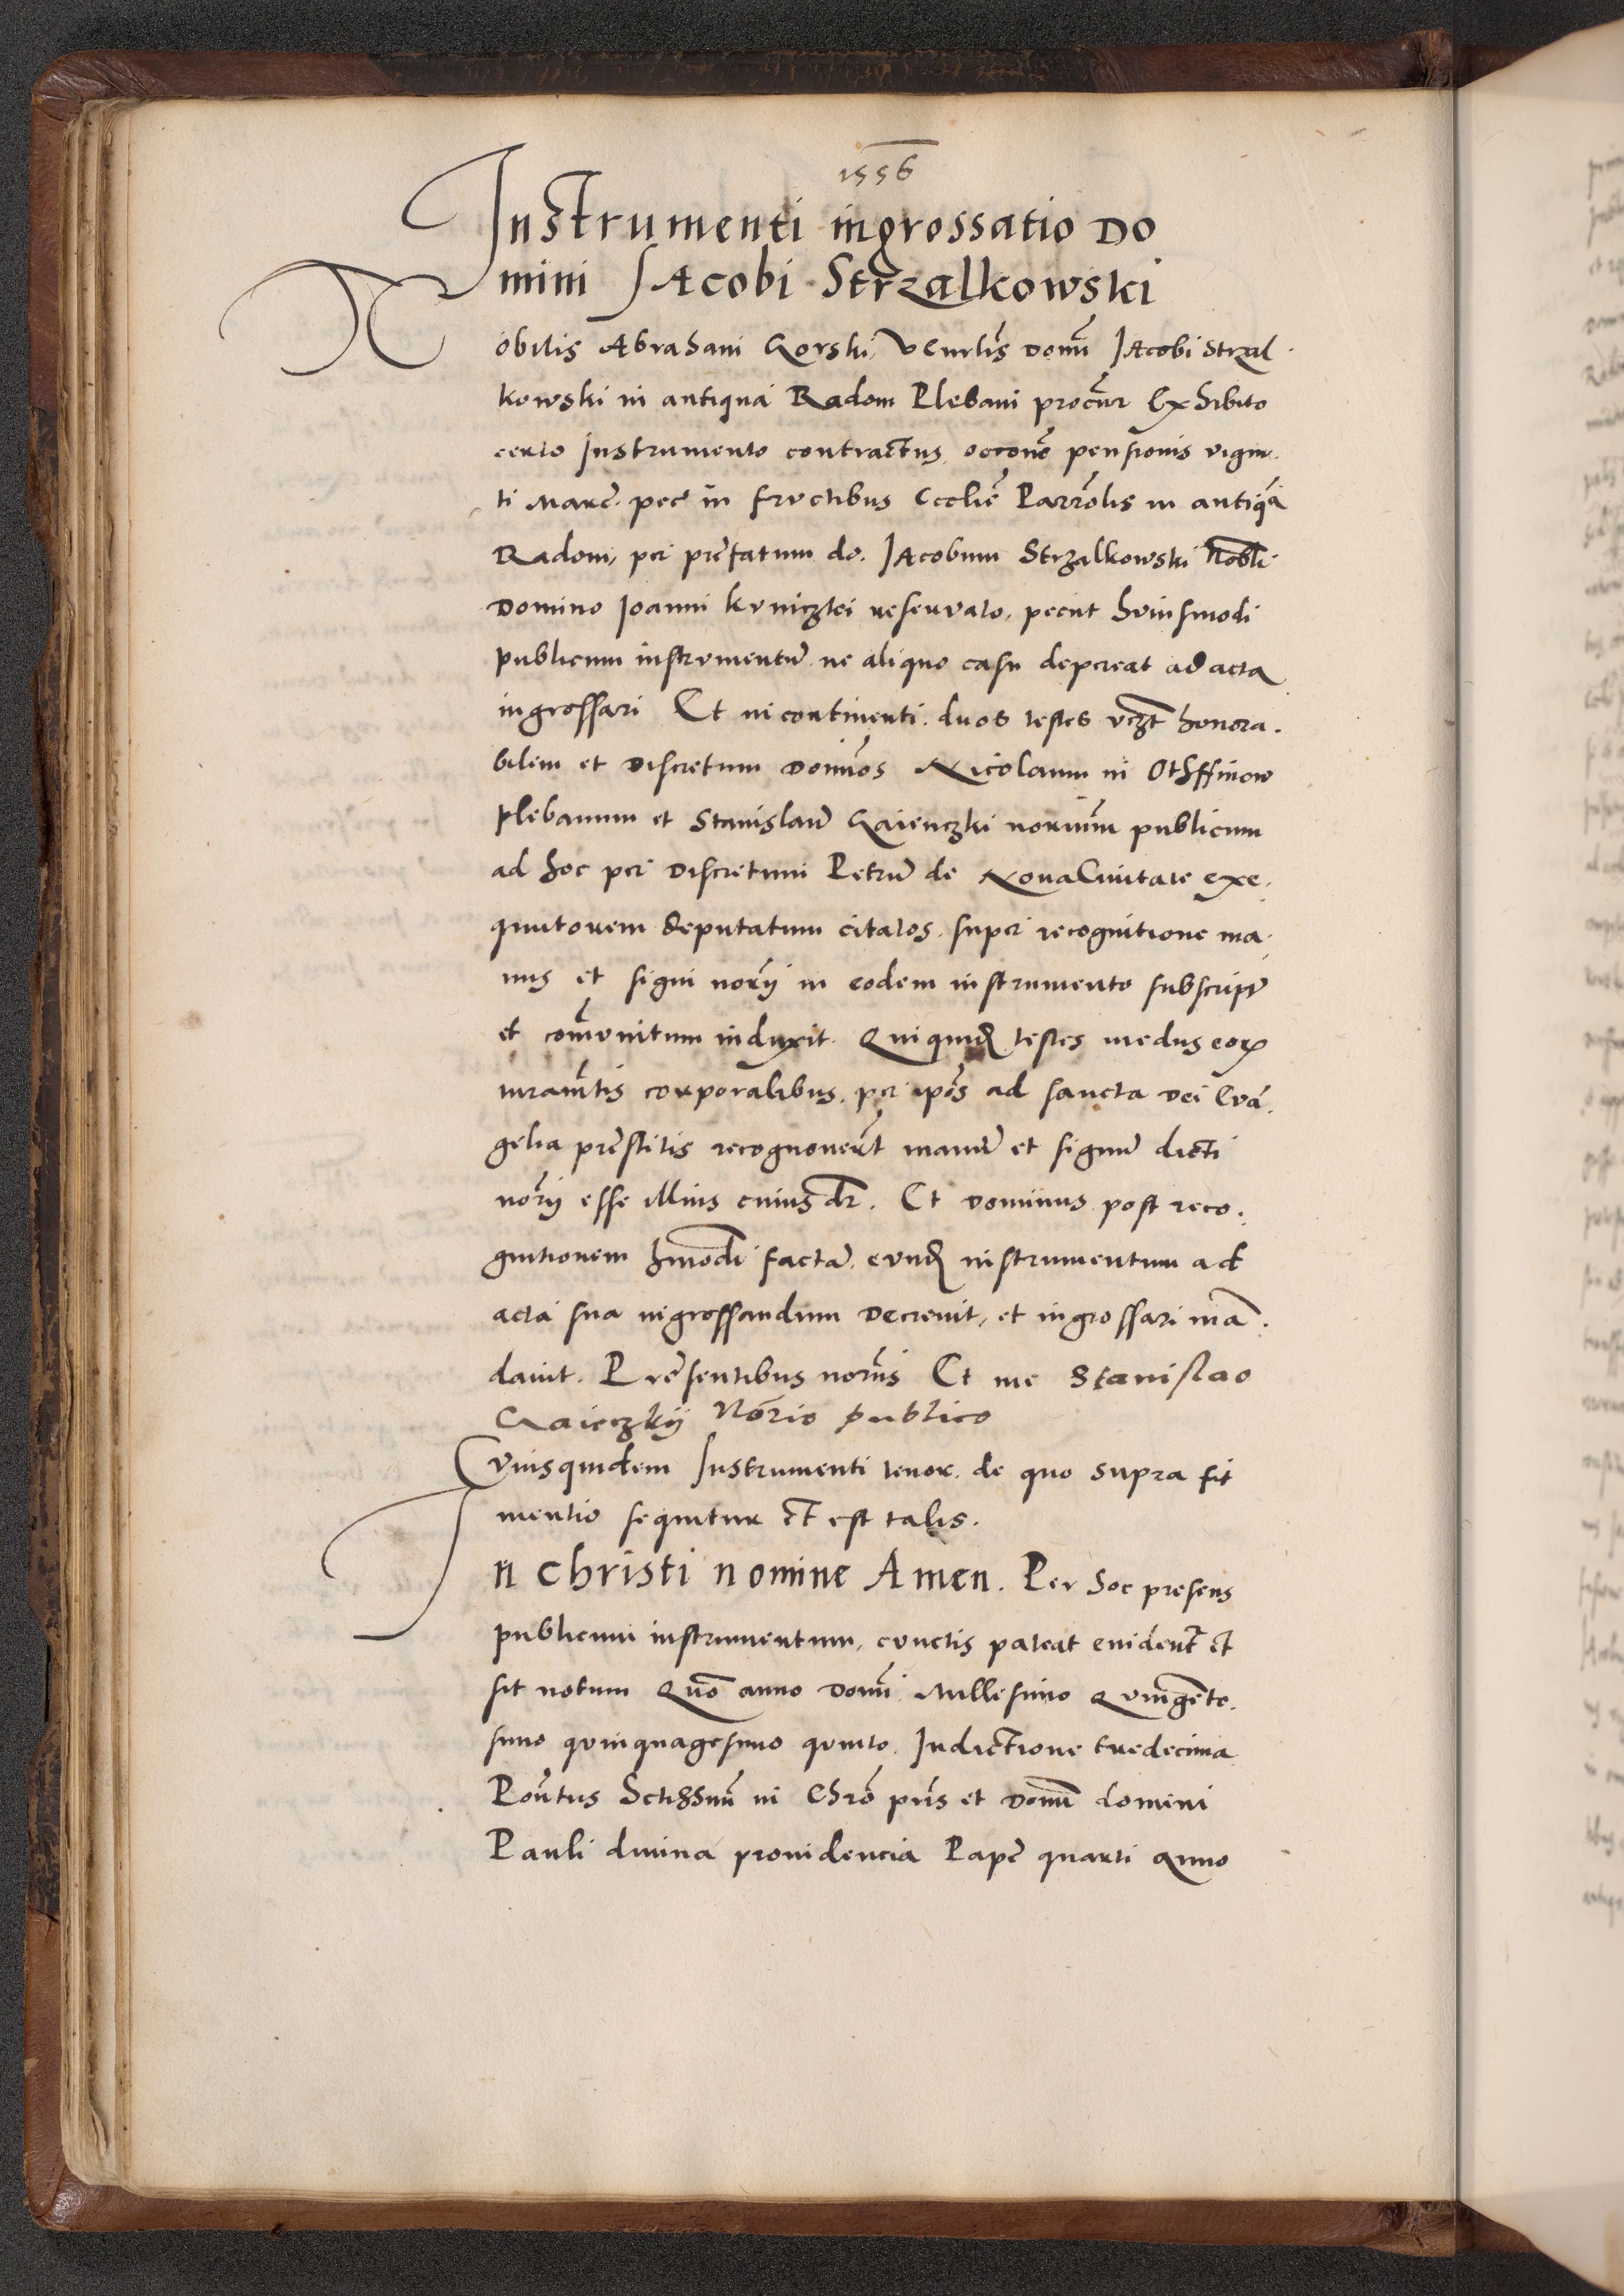 1556
Instrumenti ingrossatio Do
mini Jacobi Strzalkowski
Nobilis Abraham Gorski, Venrlis Domi Jacobi Strzal
kowski in antiqua Radom Plebani procur Exhibito
certo Instrumento contractus, occone pensionis vigin
ti Marc. pec in fructibus Ecclie Parrolis in antiqa
Radom, per prefatum do. Jacobum Strzalkowski Nobli
Domino Joanni Kuniczki reservato, peciit huiusmodi
publicum instrumentu ne aliquo casu depereat ad acta
ingrossari Et in continenti. duos testes vzt honora.
bilem et Discretum Dominos Nicolaum in Othffinow
plebanum et Stanislau Gaienczki norium publicum
ad hoc per Discretum Petru de Nova Civitate exe.
quutorem deputatum citatos. super recognitione ma.
nus et signi norij in eodem instrumento subscript
et comunitum induxit. Qui quid testes medus eor
iuramtis corporalibus. per ipos ad sancta Dei Eva.
gelia prestitis recognoverut manu et signu dicti
norij esse illius cuius dr. Et Dominus post reco.
gnitionem hmodi facta. eund instrumentum ad
acta sua ingrossandum Decrevit, et ingrossari ma.
davit. Presentibus noriis Et me Stanislao
Gaieczkij Norio publico
Cuiusquidem Instrumenti tenor. de quo supra fit
mentio sequitur et est talis.
In Christi nomine Amen. Per hoc presens
publicum instrumentum, cunctis pateat evident et
sit notum Quo anno Domi Millesimo Quingente.
simo quinquagesimo quinto. Indictione tredecima
Pontus Sctissmi in Chro pris et Domi domini
Pauli divina providencia Pape quarti anno